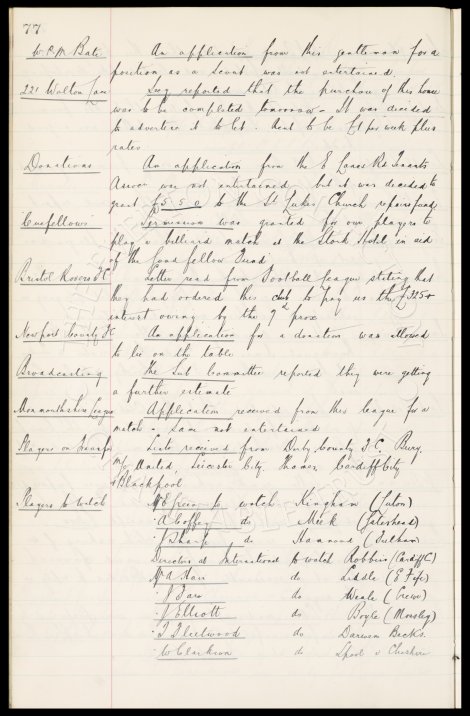 77
W. R. M. Bate An application from this gentleman for a
position as a Scout was not entertained.
221 Walton Lane Secy reported that the purchase of this house
was to be completed tomorrow. It was decided
to advertise it to let. Rent to be £1 per week plus
rates
Donations An application from the E Lancs Rd Tenants
Assoc was not entertained but it was decided to
grant £5.5.0 to the St Lukes Church repairs fund
Permission was granted for our players to
play a billiard match at the Stork Hotel in aid
of the Good fellow Fund.
Bristol Rovers F.C. Letter read from Football League stating that
they had ordered this club to pay us the £325 &
interest owing by the 9th prox
Newport County F.C An application for a donation was allowed
to lie on the table
Broadcasting The Sub Committee reported they were getting
a further estimate
Monmouthshire League Application received from this League for a
match. Same not entertained
Players on transfer Lists received from Derby County F.C, Bury,
M/c United, Leicester City, Thames, Cardiff City
& Blackpool
Players to watch to watch Kingham (Luton)
A Coffey do Meek (Gateshead)
J Sharp do Hammond (Fulham)
Directors at International to watch Robbins (Cardiff C)
do Liddle (E Fife)
do Weale (Crewe)
J Elliott do Boyle (Mossley)
T Fleetwood do Darwen
W Clarkson do Lpool v Cheshire